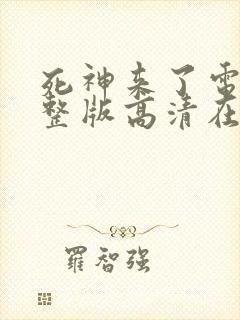 死神来了电
整版高清在
羅智強